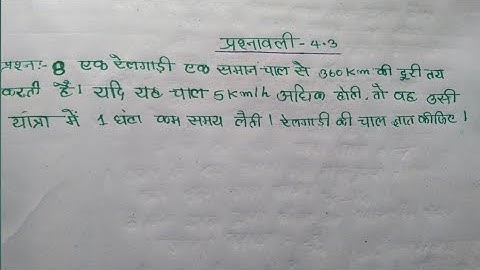 प्रश्नावली - 4.3
प्रश्न:- 8 एक रेलगाड़ी एक समान चाल से 360 km की दूरी तय
करती है। यदि यह चाल 5 km/h अधिक होती, तो वह उसी
यात्रा में 1 घंटा कम समय लेती। रेलगाड़ी की चाल ज्ञात कीजिए।